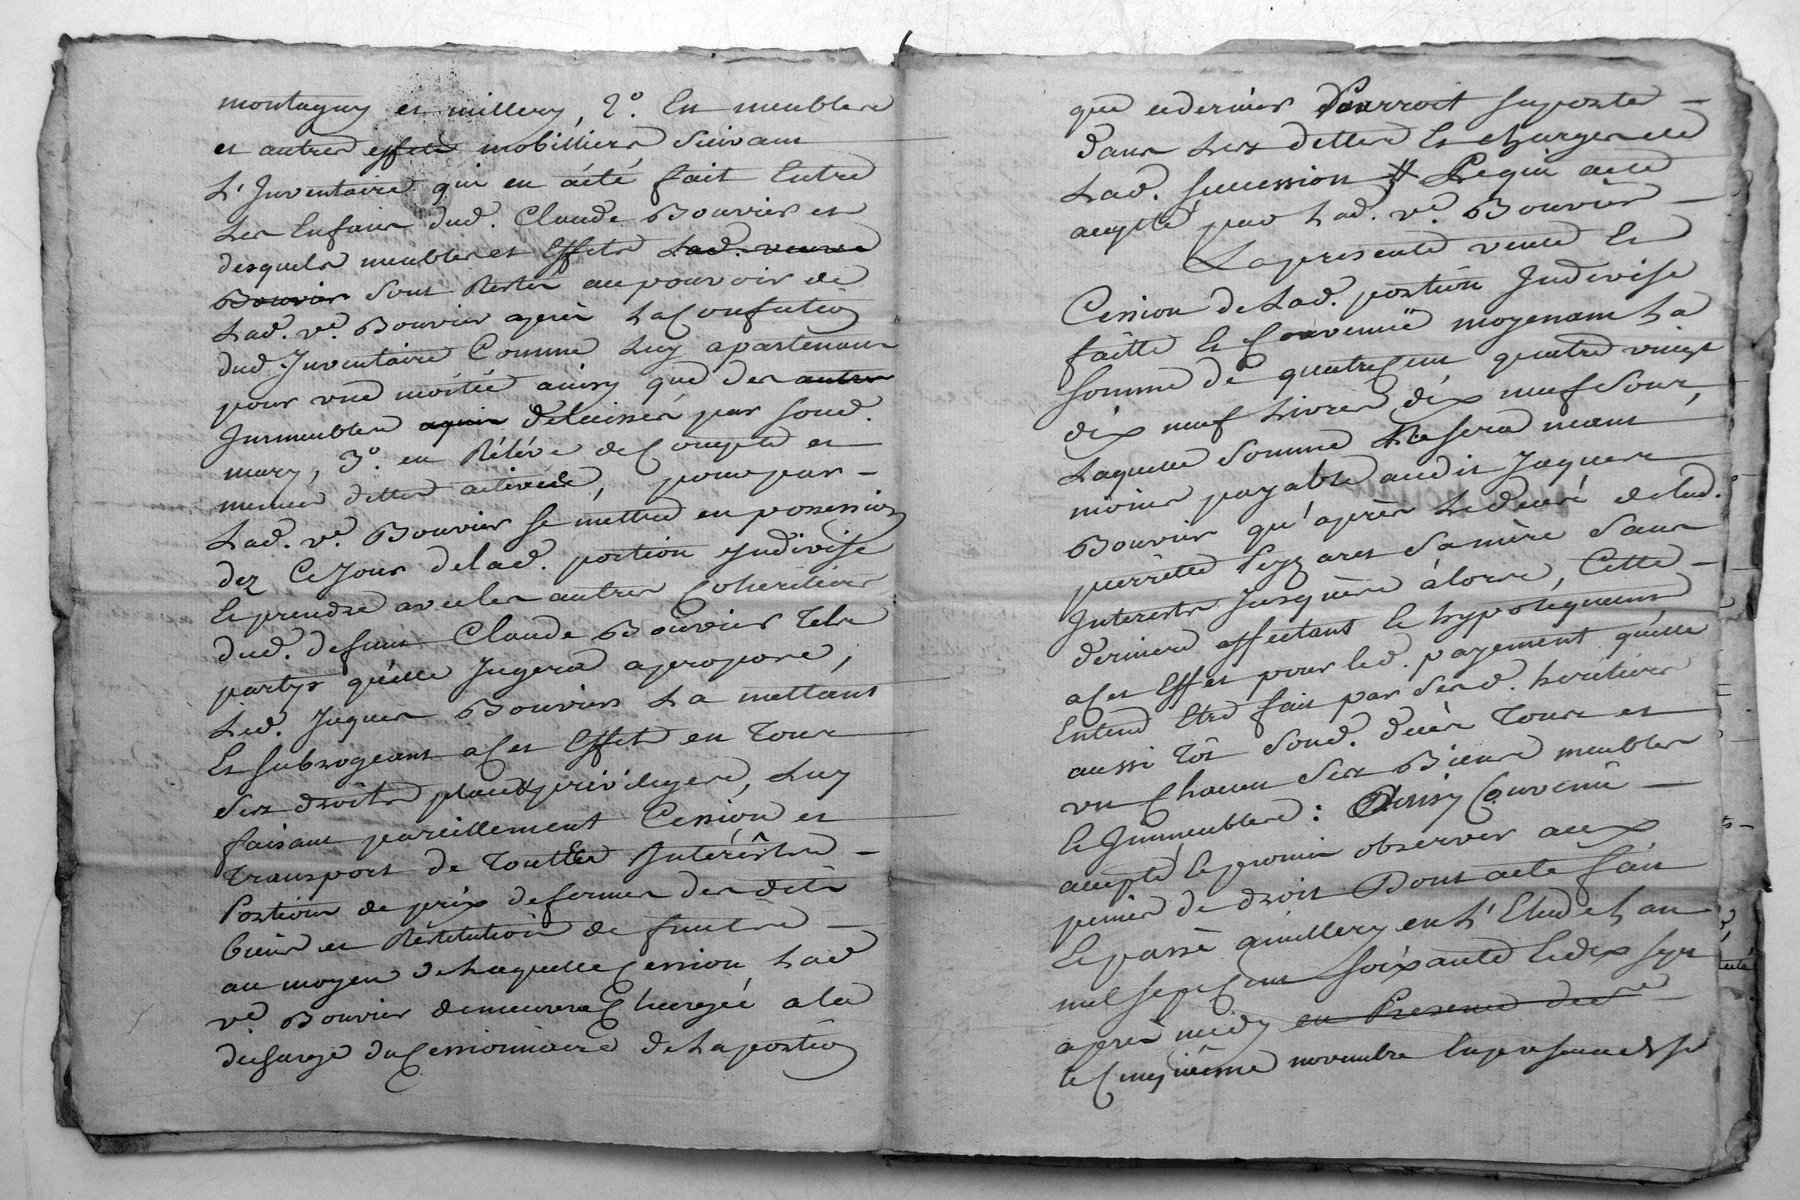 montagny et millery, 2°. En meubles
et autres effets mobilliers suivant
L'Inventaire qui en àété fait Entre
Les Enfans dud. Claude Bouvier et
desquels meubles et Effets Lad. veuve
Bouvier sont Restés aupouvoir de
Lad. ve. Bouvier après LaConfection
dud. Inventaire Comme Luy apartenans
pour une moitié ainsy que des autres
Immeubles delaissés par soud.
mary, 3°. en Rélévé de Compte et
mesme dettes actives, pour par -
Lad. ve. Bouvier se mettre en possession
dez CeJour delad. portion Indivise
Le prendre avec les autres Coheritiers
dud. defunt Claude Bouvier Tels
partys quelle Jugera apropore,
Led. Jaques Bouvier La mettant
Et subrogeant aCet Effet en Tous
ses droits privileges, Luy
faisant pareillement Cession et
Transport de Touttes Intérêts -
Portions de prix defermes des dits
biens et Réstitution de fruits -
au moyen de Laquelle Cession Lad
ve. Bouvier demeurera Chargée a la
decharge du Cessionnaire de Laportion
que cedernier Pourroit suporter -
dans Les dettes Et charges de
Lad. succession # Cequi a été
accepté par Lad. ve. Bouvier -
Lapresente vente Et
Cession de Lad. portion Indivise
faitte Et Convenüe moyenant La
somme de quatreCent quatre vingt
dix neuf Livres dix neuf sous,
Laquelle somme Ne sera neant
moins payable audit Jaques
Bouvier qu'apres Ledecé delad.
pierrette sa mère sans
Interests Jusques àlors, Cette -
derniere affectant Et hypotequant
aCet Effet pour led. payement quelle
Entend Etre fait par sesd. heritiers
aussi Tôt soud. decès Tous et
un Chacun ses Biens meubles
Et Immeubles : Ainsy Convenu -
accepté Et promis observer aux
peines de droit Dont acte fait
Et passé amillery en L'Etude Lan
mil septCent soixante Et dix sept
après midy en Presence de
le Cinquiéme novembre Enpresence desr